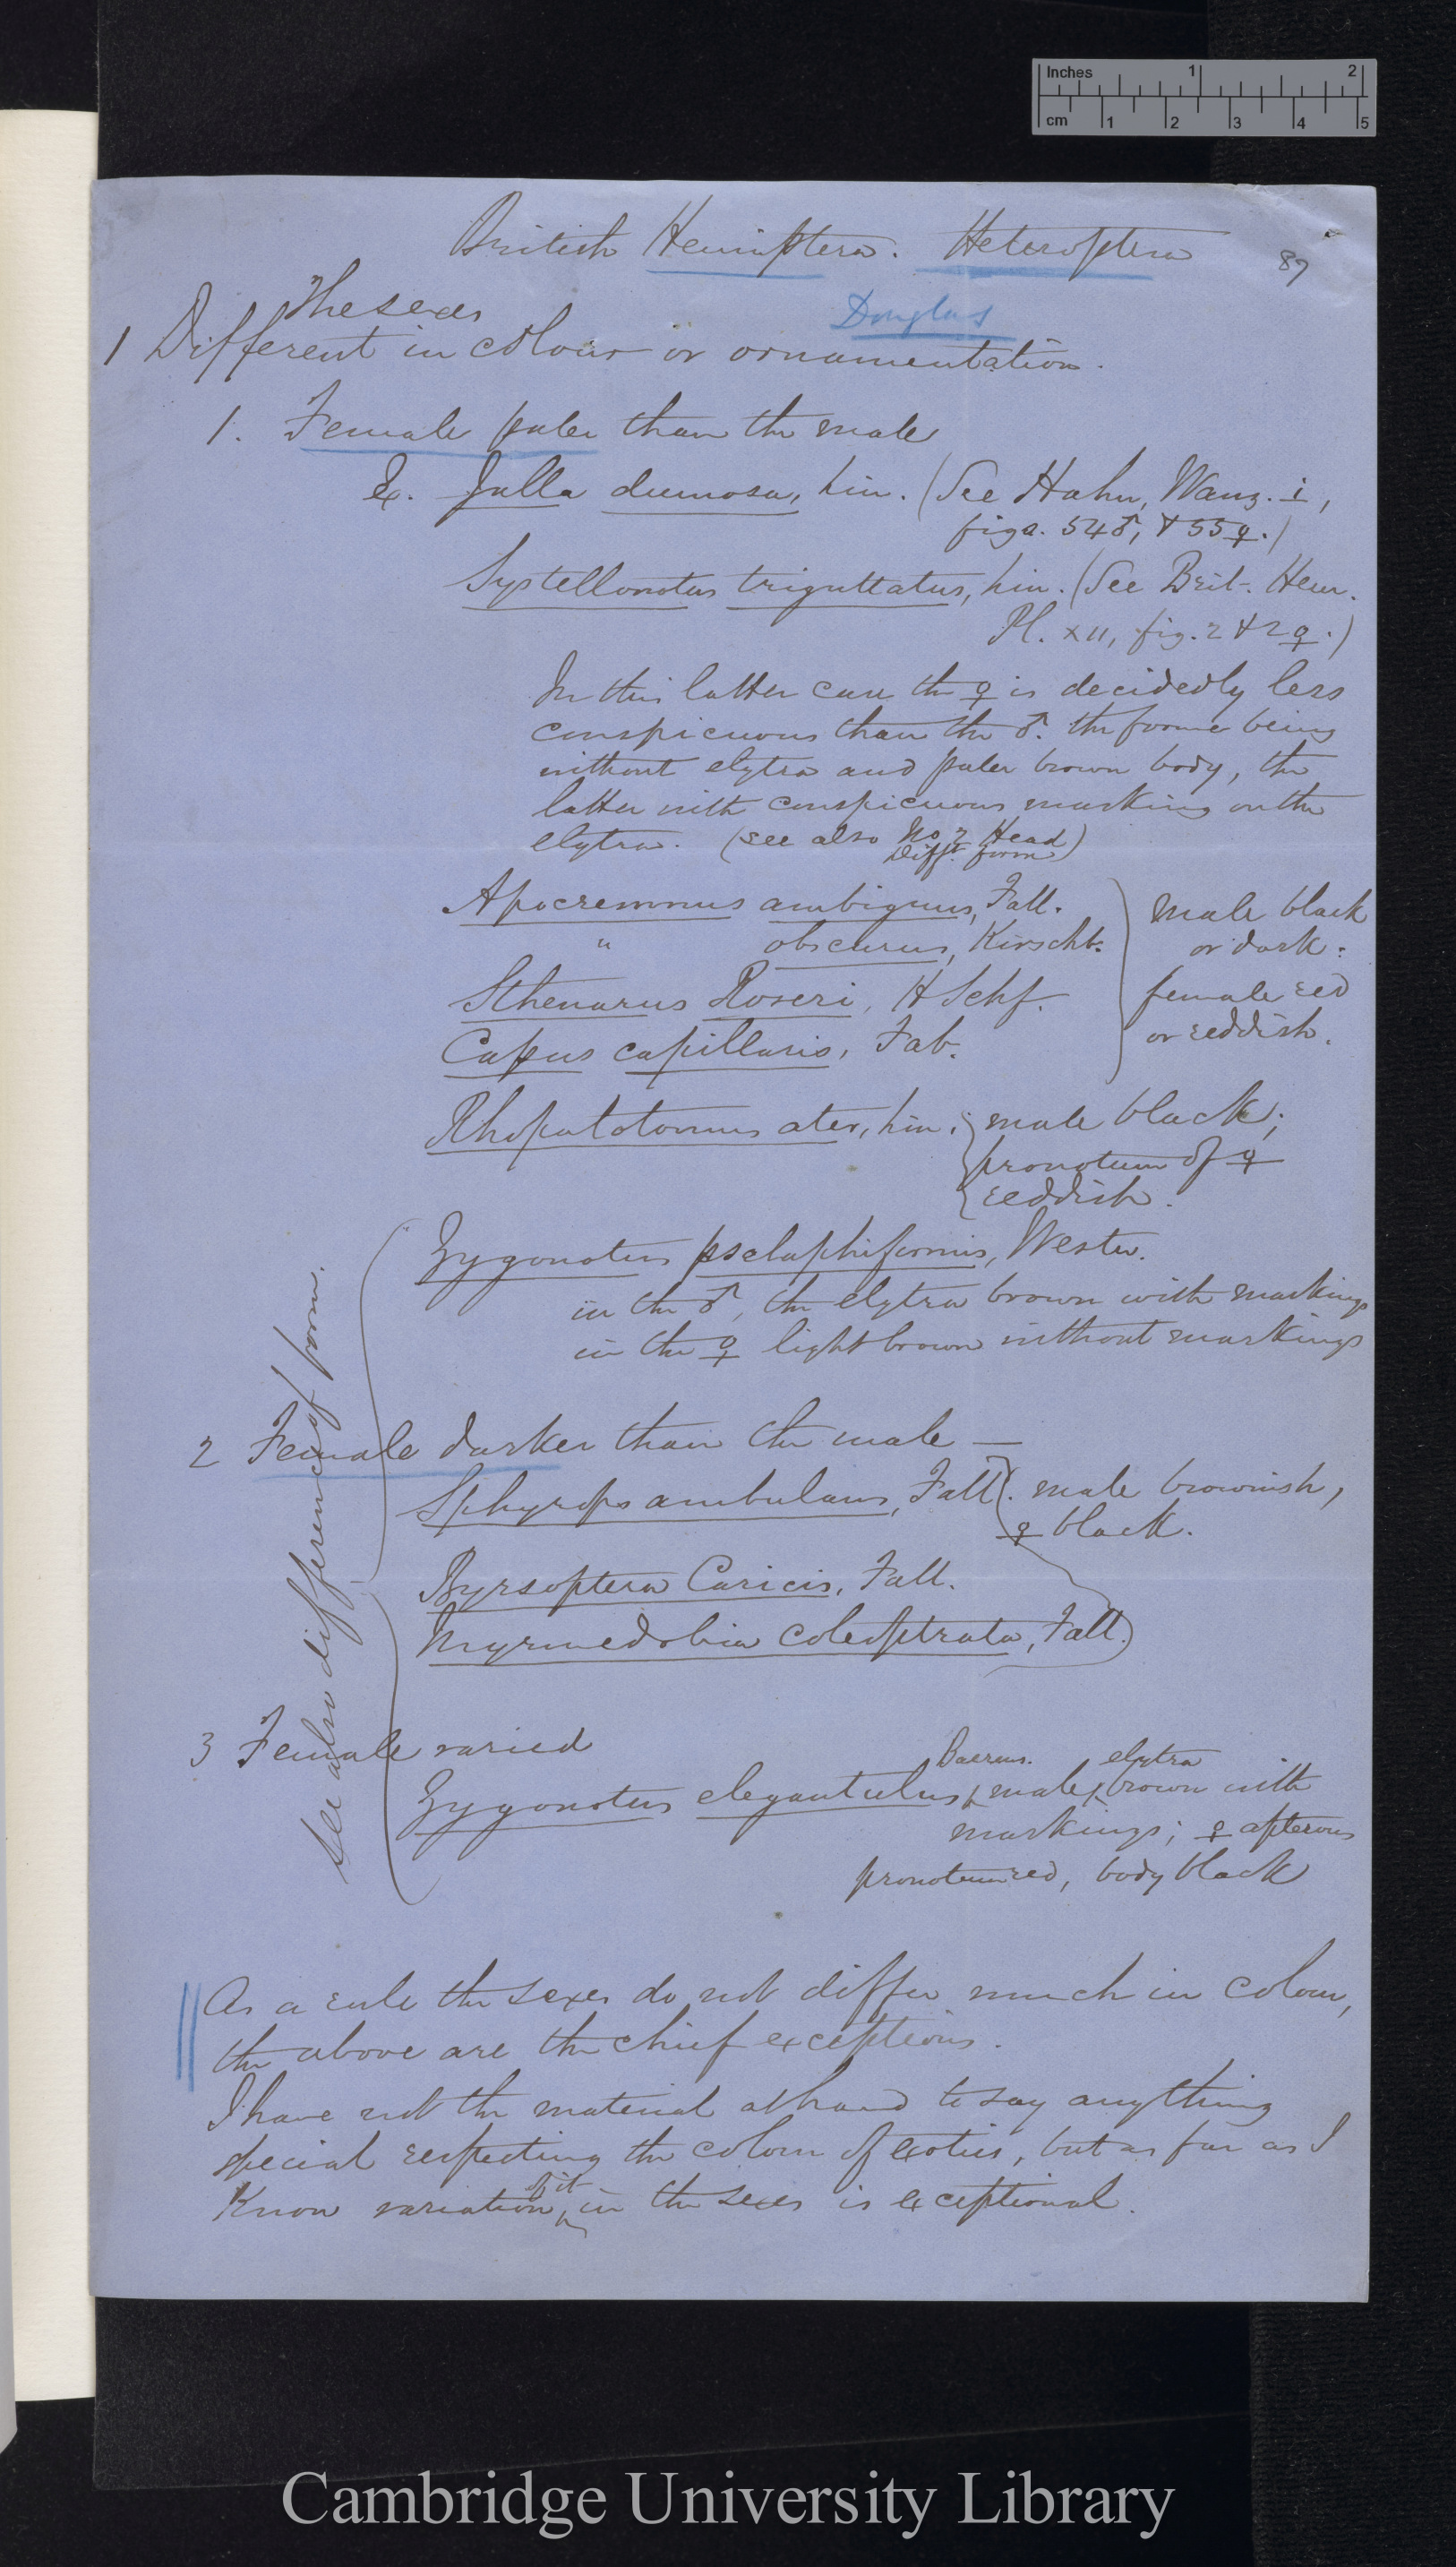 Inches 1 2
cm 1 2 3 4 5
British Hemiptera. Heteroptera
87
Douglas
The sexes
1 Different in colour or ornamentation.
1. Female paler than the male
Ex. Jalla dumosa, Lin. (See Hahn, Wanz. i,
figs. 54♂, & 55♀.)
Systellonotus triguttatus, Lin. (See Brit. Hem.
Pl. XII, fig. 2 & 2♀.)
In this latter case the ♀ is decidedly less
conspicuous than the ♂. the former being
without elytra and paler brown body, the
latter with conspicuous marking on the
elytra. (see also No 2 Head
Difft. form)
Apocremnus ambiguus, Fall.
" obscurus, Kirschb.
Sthenarus Roseri, H Schf.
Capsus capillaris, Fab.
male black
or dark:
female red
or reddish.
Rhopalotomus ater, Lin: male black;
pronotum of ♀
reddish.
Zygonotus pselaphiformis, Westw.
in the ♂, the elytra brown with markings
in the ♀ light brown without markings
2 Female darker than the male —
Sphyrops ambulans, Fall. male brownish,
♀ black.
Byrsoptera Caricis, Fall.
Myrmedobia coleoptrata, Fall.
3 Female varied
Zygonotus elegantulus, Baerens. male, elytra brown with
markings; ♀ apterous
pronotum red, body black
See also difference of form.
As a rule the sexes do not differ much in colour,
the above are the chief exceptions.
I have not the material at hand to say anything
special respecting the colour of exotics, but as far as I
know variation of it in the sexes is exceptional.
Cambridge University Library